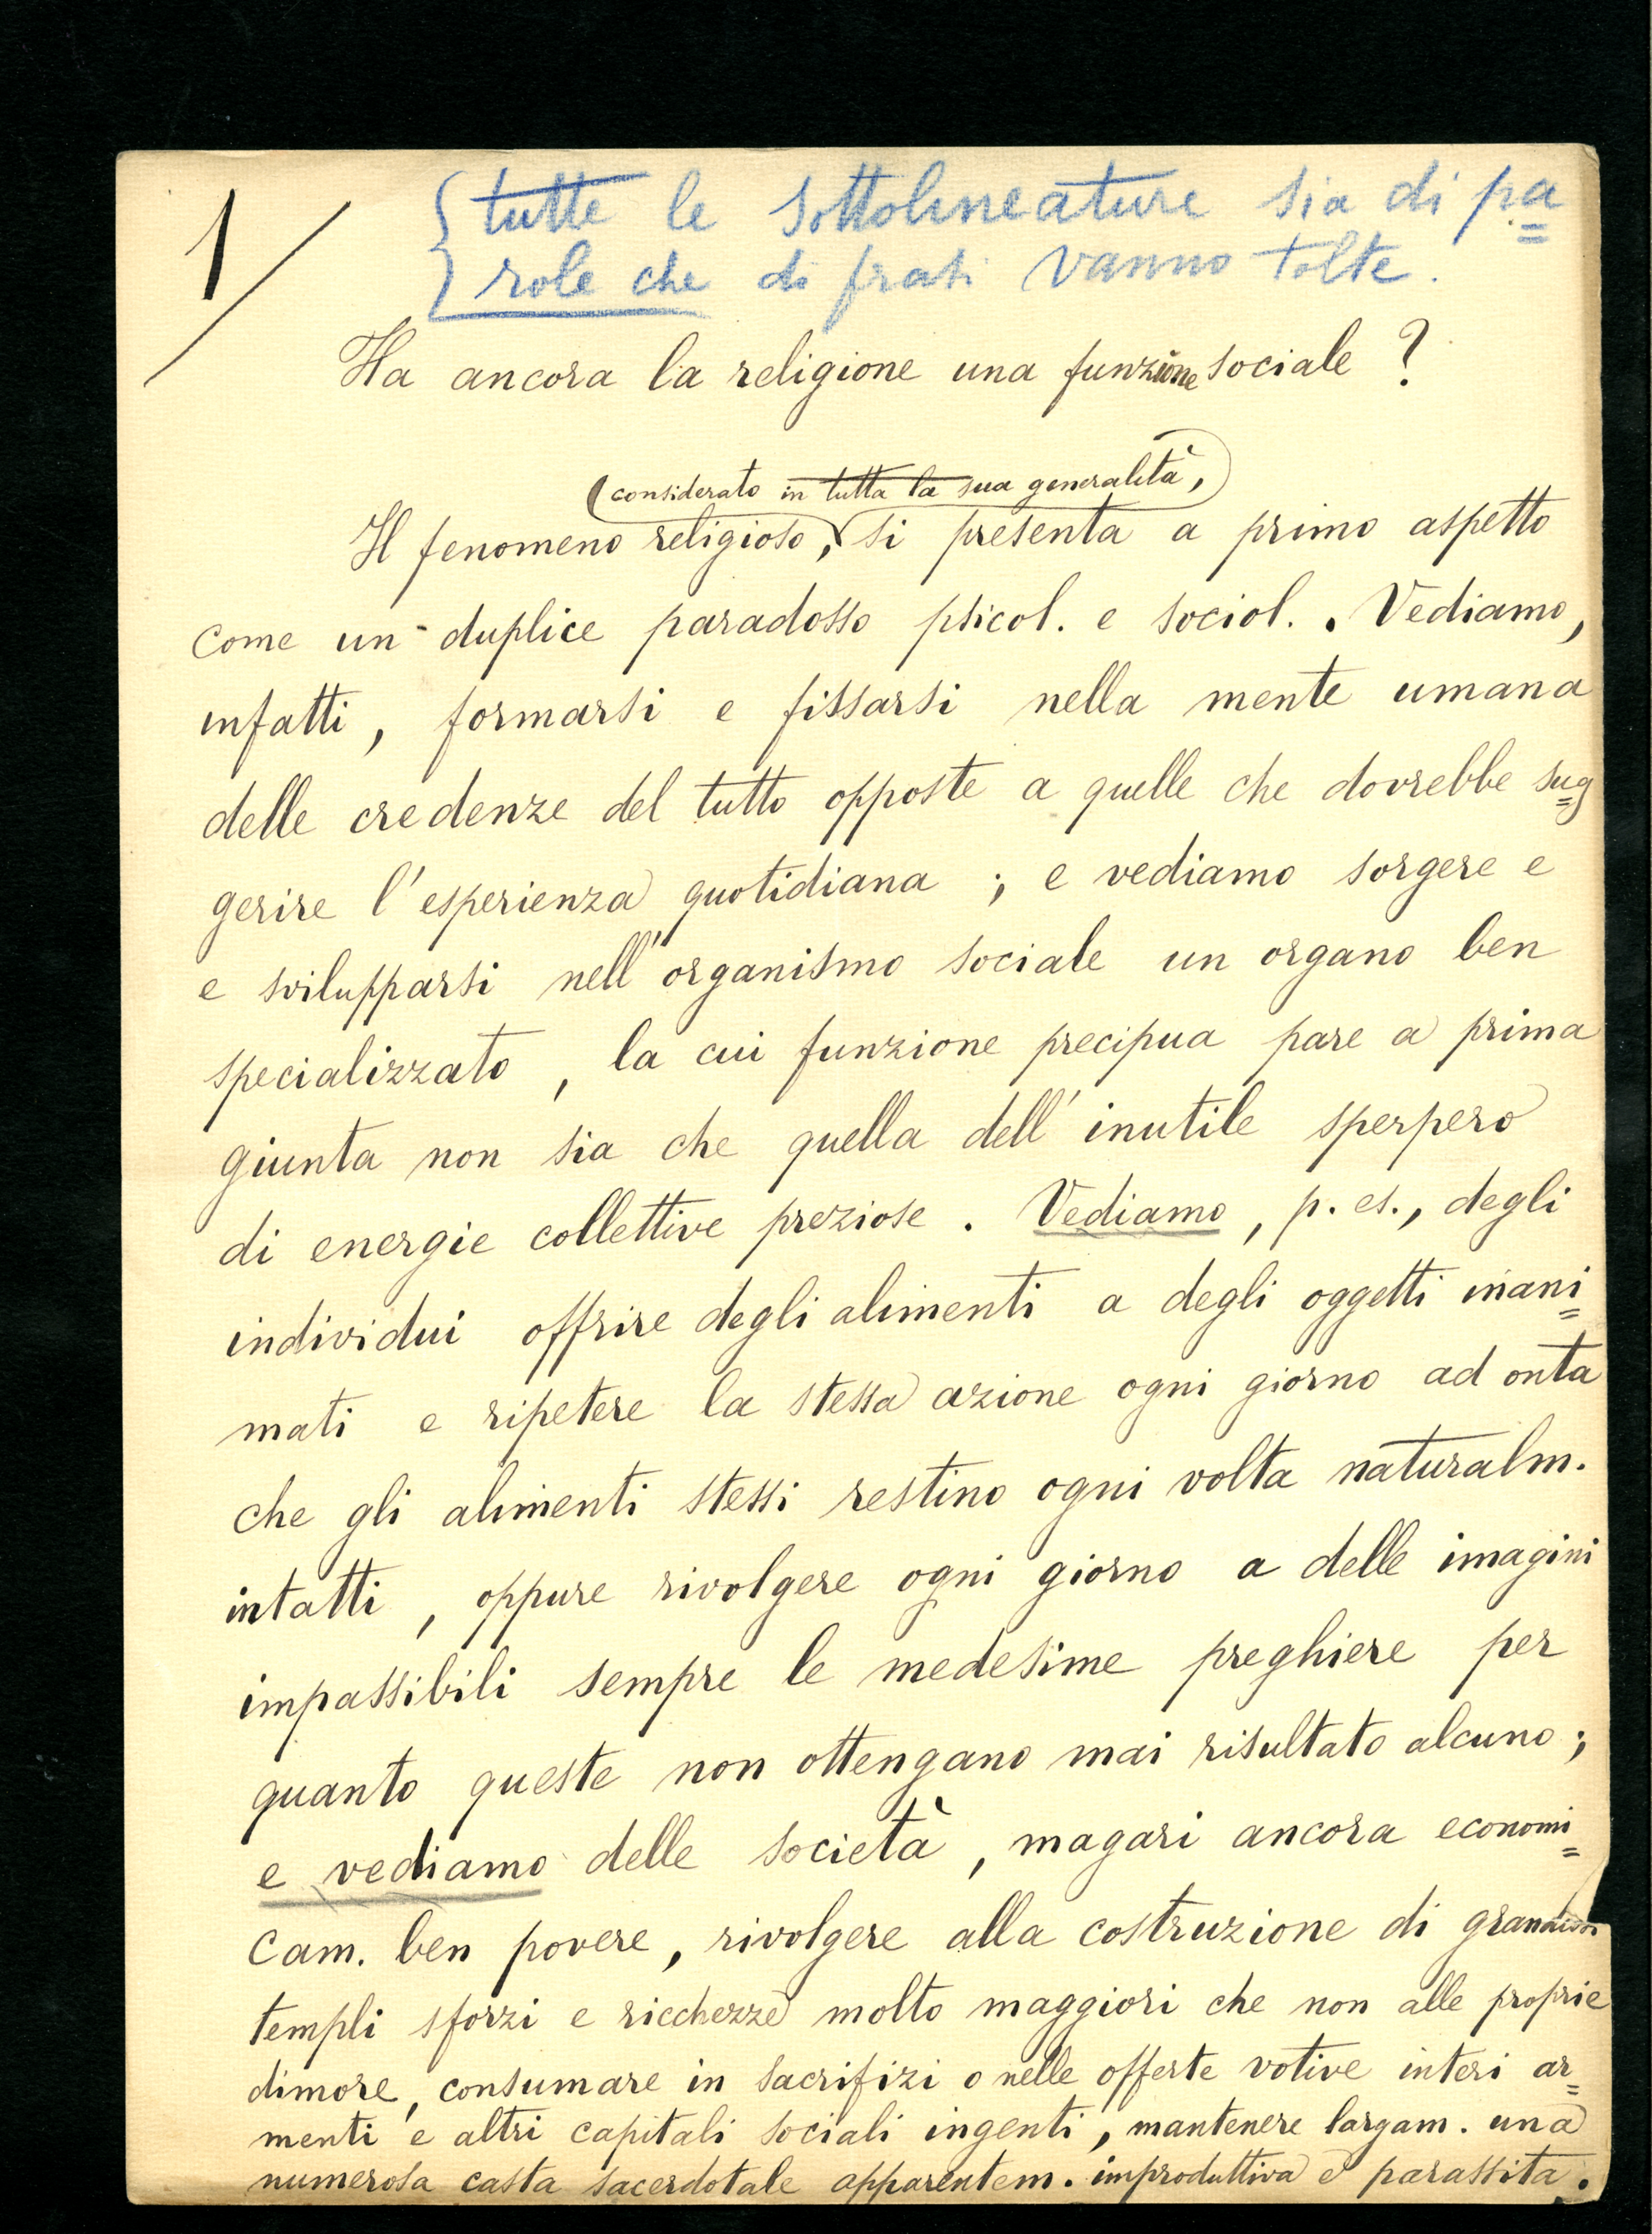 1
{tutte le sottolineature sia di pa=
role che di frasi vanno tolte.
Ha ancora la religione una funzione sociale ?
considerato in tutta la sua generalità,
Il fenomeno religioso, si presenta a primo aspetto
come un duplice paradosso psicol. e sociol. . Vediamo,
infatti, formarsi e fissarsi nella mente umana
delle credenze del tutto opposte a quelle che dovrebbe sug=
gerire l'esperienza quotidiana ; e vediamo sorgere e
e svilupparsi nell'organismo sociale un organo ben
specializzato, la cui funzione precipua pare a prima
giunta non sia che quella dell'inutile sperpero
di energie collettive preziose. Vediamo, p. es., degli
individui offrire degli alimenti a degli oggetti inani=
mati e ripetere la stessa azione ogni giorno ad onta
che gli alimenti stessi restino ogni volta naturalm.
intatti, oppure rivolgere ogni giorno a delle imagini
impassibili sempre le medesime preghiere per
quanto queste non ottengano mai risultato alcuno ;
e vediamo delle società, magari ancora economi=
cam. ben povere, rivolgere alla costruzione di
templi sforzi e ricchezze molto maggiori che non alle proprie
dimore, consumare in sacrifizi o nelle offerte votive interi ar=
menti e altri capitali sociali ingenti, mantenere largam. una
numerosa casta sacerdotale apparentem. improduttiva e parassita.